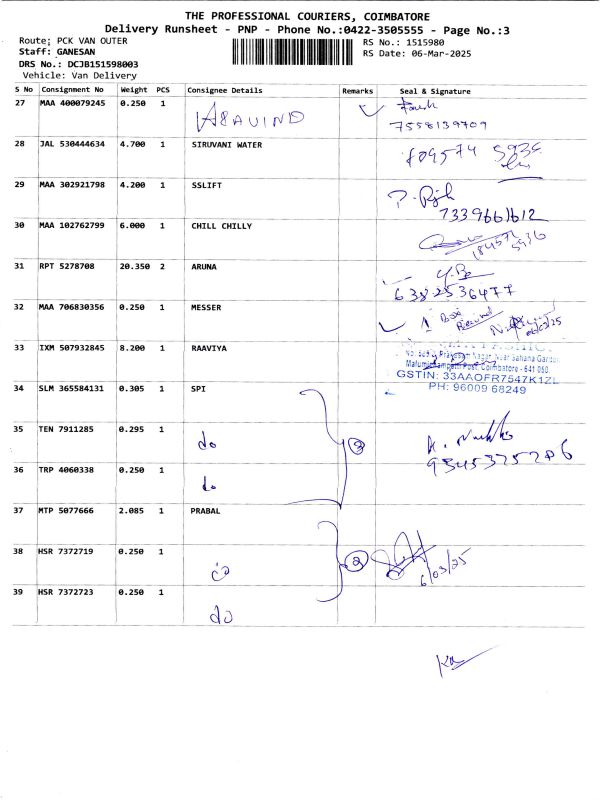 THE PROFESSIONAL COURIERS, COIMBATORE
Delivery Runsheet - PNP - Phone No.:0422-3505555 - Page No.:3
Route: PCK VAN OUTER
RS No.: 1515980
Staff: GANESAN
RS Date: 06-Mar-2025
DRS No.: DCJB151598003
Vehicle: Van Delivery
S No Consignment No Weight PCS Consignee Details Remarks Seal & Signature
27 MAA 400079245 0.250 1 ARAVIND
7558139709
28 JAL 530444634 4.700 1 SIRUVANI WATER
29 MAA 302921798 4.200 1 SSLIFT
7339661612
30 MAA 102762799 6.000 1 CHILL CHILLY
31 RPT 5278708 20.350 2 ARUNA
6382536477
32 MAA 706830356 0.250 1 MESSER
1 Box Received
33 IXM 507932845 8.200 1 RAAVIYA
Prakasam Nagar, Near Sahana Garden
Post, Coimbatore - 641 050.
GSTIN: 33AAOFR7547K1ZL
PH: 96009 68249
34 SLM 365584131 0.305 1 SPI
35 TEN 7911285 0.295 1 do 3
9345375286
36 TRP 4060338 0.250 1 do
37 MTP 5077666 2.085 1 PRABAL
38 HSR 7372719 0.250 1 do 2
6/03/25
39 HSR 7372723 0.250 1 do